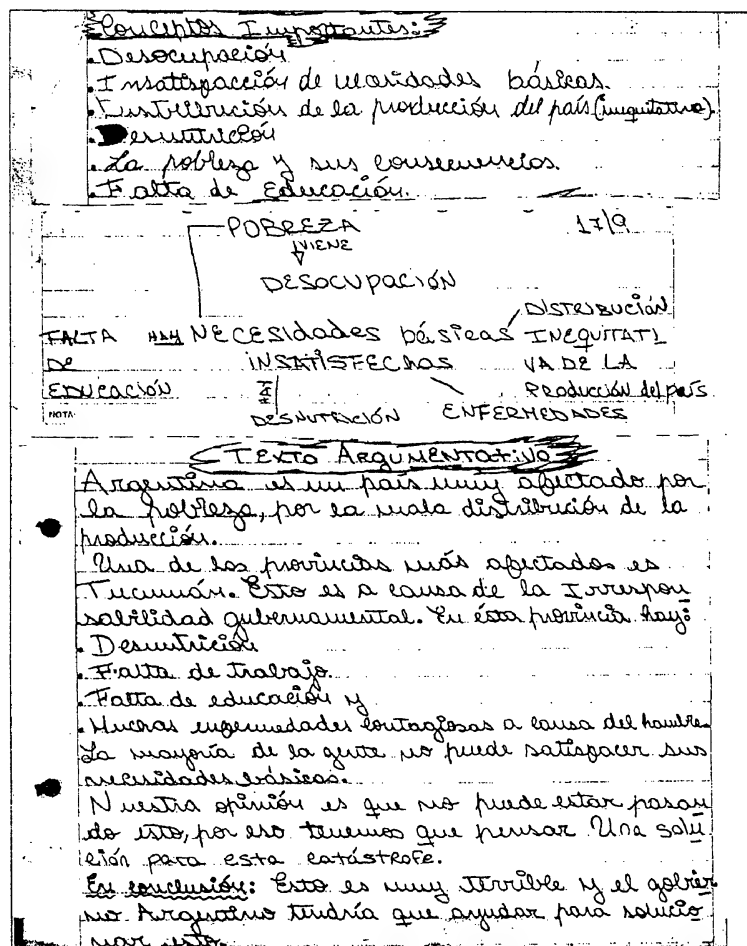 Conceptos Importantes:
. Desocupación
. Insatisfacción de necesidades básicas.
. Distribución de la producción del país (inequitativa).
. Desnutrición
. La pobleza y sus consecuencias.
. Falta de Educación.
POBREZA 17/9
VIENE
DESOCUPACIÓN
DISTRIBUCIÓN
FALTA HAY NECESIDADES básicas INEQUITATI
DE INSATISFECHAS VA DE LA
EDUCACIÓN HAY PRODUCCIÓN del país
NOTA: DESNUTRICIÓN ENFERMEDADES
TEXTO ARGUMENTATIVO
Argentina es un país muy afectado por
la pobleza, por la mala distribución de la
producción.
Una de las provincias más afectados es
Tucumán. Esto es a causa de la Irrespon
sabilidad gubernamental. En ésta provincia hay:
. Desnutrición
. Falta de trabajo.
. Falta de educación y
. Muchas enfermedades contagiosas a causa del hambre.
La mayoría de la gente no puede satisfacer sus
necesidades básicas.
Nuestra opinión es que no puede estar pasan
do esto, por eso tenemos que pensar Una solu
ción para esta catástrofe.
En conclusión: Esto es muy terrible y el gobier
no Argentino tendría que ayudar para solucio
nar esto.